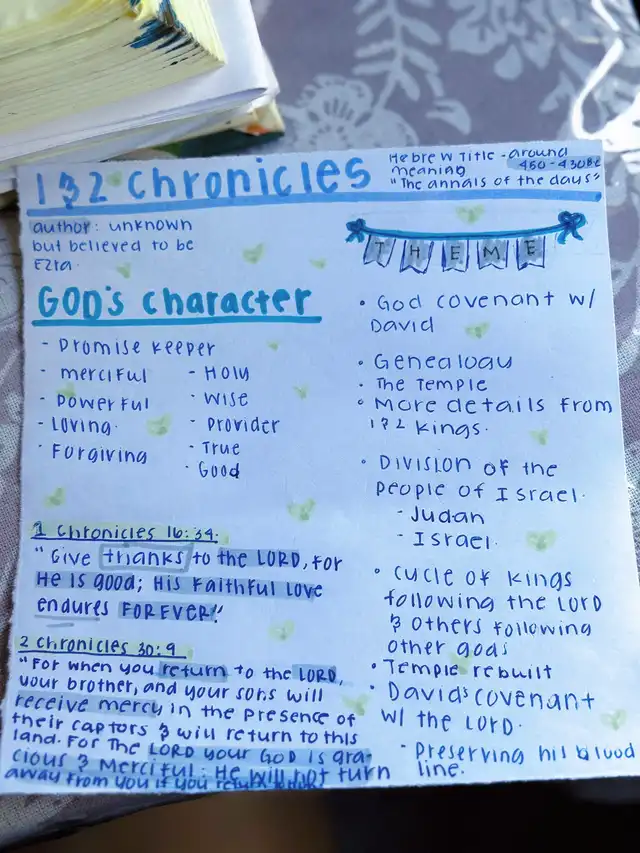 1 & 2 Chronicles
Hebrew Title - around
meaning 450-430BC
"The annals of the days"
author: unknown
but believed to be
Ezra.
GOD's character
- Promise keeper
- merciful
- Powerful
- Loving
- Forgiving
- Holy
- Wise
- Provider
- True
- Good
1 Chronicles 16:34:
"Give thanks to the LORD, for
He is good; His Faithful Love
endures FOREVER!"
2 Chronicles 30:9
"For when you return to the LORD,
your brother, and your sons will
receive mercy in the presence of
their captors & will return to this
land. For The LORD your GOD is gra-
cious & Merciful: He will not turn
away from you if you return
THEME
• God covenant w/
David
• Genealogy
• The Temple
• More details from
1 & 2 Kings.
• Division of the
people of Israel.
- Judah
- Israel.
• Cycle of Kings
following the LORD
& others following
other gods
• Temple rebuilt
• David's covenant
w/ the LORD.
- Preserving his blood
line.